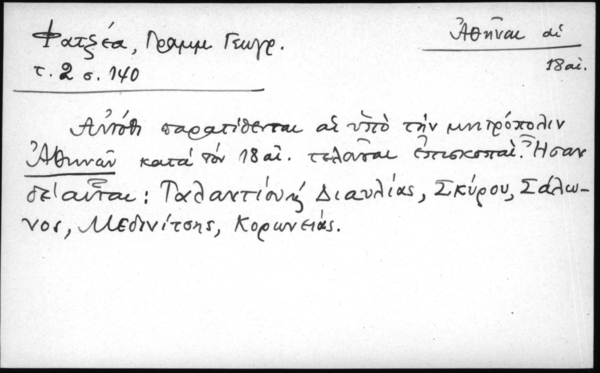 Φατζέα, Γραμμ Γεωγρ.
τ. 2 σ. 140
Ἀθῆναι αἱ
18 αἰ.
Αὐτόθι παρατίθενται αἱ ὑπὸ τὴν μητρόπολιν
Ἀθηνῶν κατὰ τὸν 18 αἰ. τελοῦσαι ἐπισκοπαί. Ἦσαν
δὲ αὗται: Ταλαντίου ἢ Διαυλίας, Σκύρου, Σάλω-
νος, Μεδινίτσης, Κορωνειάς.